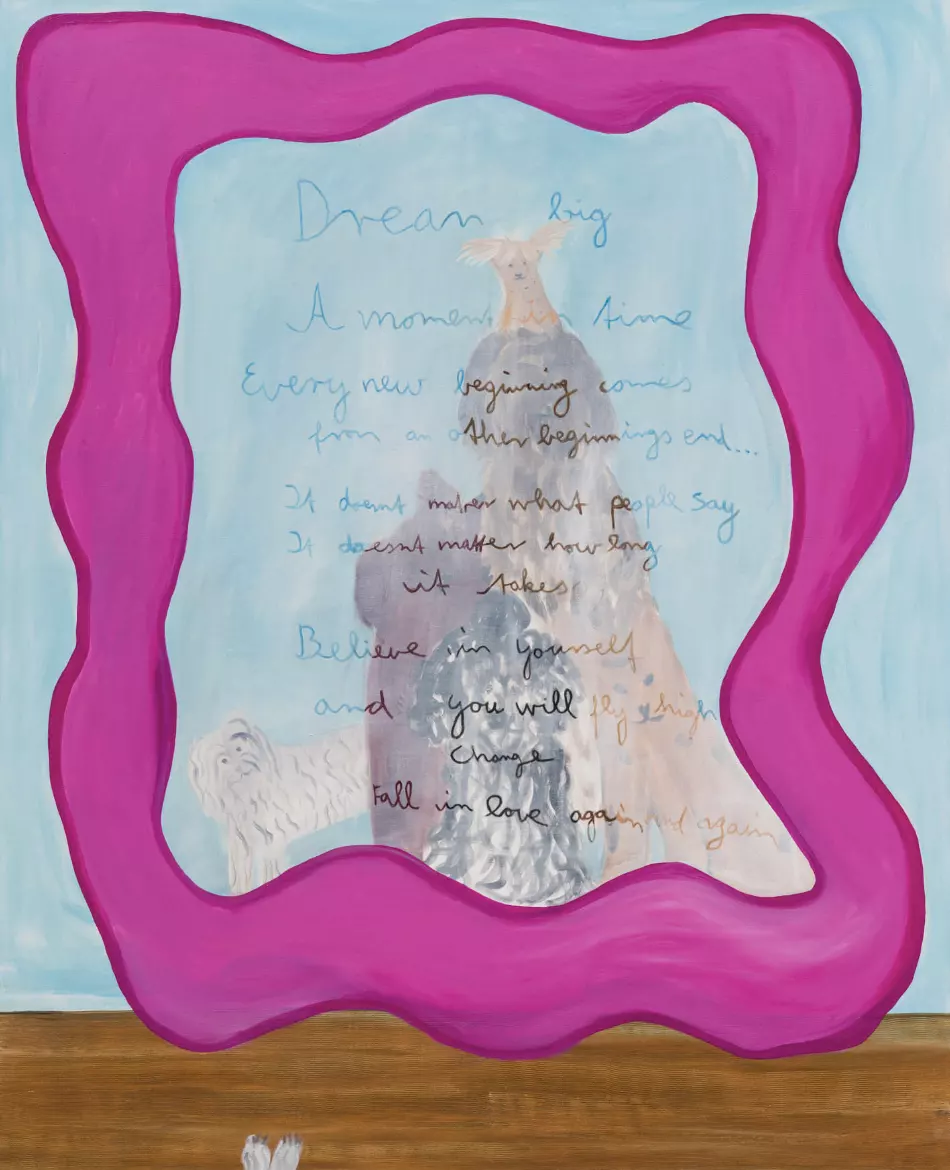 Drean big
A moment in time
Every new beginning comes
from an other beginnings end...
It doesnt mater what people say
It doesnt matter how long
it takes
Believe in yourself
and you will fly high
Change
Fall in love again nd again